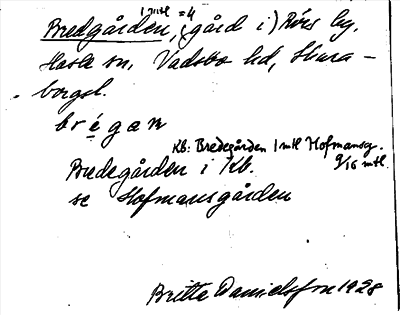 1 mtl = 4
Bredgården, (gård i) Rörs by,
Hassle sn, Vadsbo hd, Skara-
borgsl.
brégan
Kb: Bredegården 1 mtl Hofmansg. 9/16 mtl.
Bredegården i Kb.
se Hofmansgården
Britta Danielsson 1928